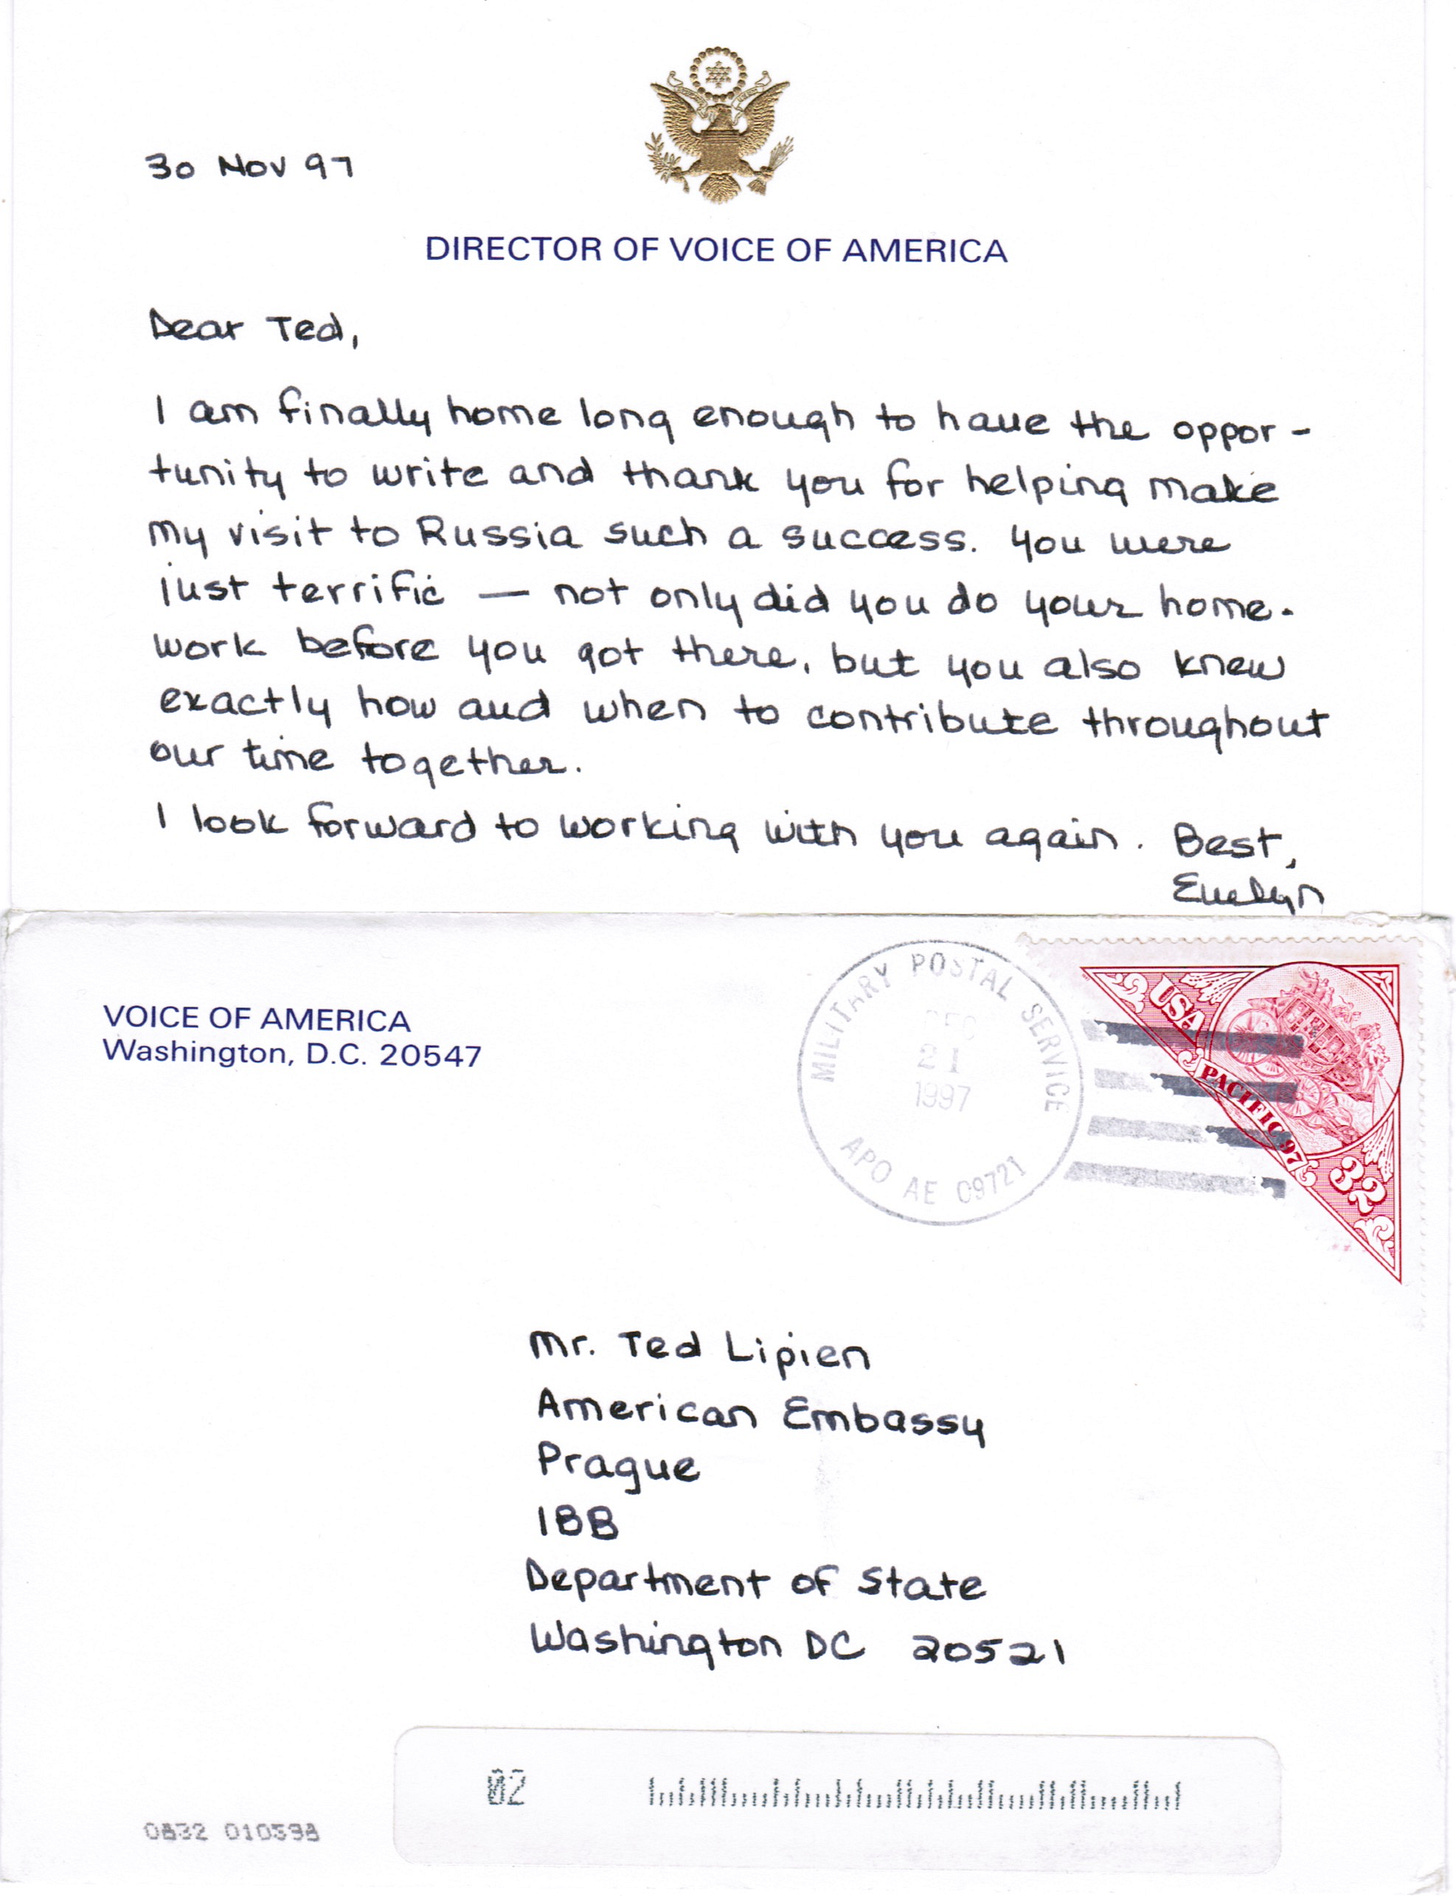 30 Nov 97
DIRECTOR OF VOICE OF AMERICA
Dear Ted,
I am finally home long enough to have the oppor-
tunity to write and thank you for helping make
my visit to Russia such a success. You were
just terrific — not only did you do your home-
work before you got there, but you also knew
exactly how and when to contribute throughout
our time together.
I look forward to working with you again. Best,
Evelyn
VOICE OF AMERICA
Washington, D.C. 20547
MILITARY POSTAL SERVICE
DEC
21
1997
APO AE 09721
USA
PACIFIC 97
32
Mr. Ted Lipien
American Embassy
Prague
IBB
Department of State
Washington DC 20521
02
0832 010598